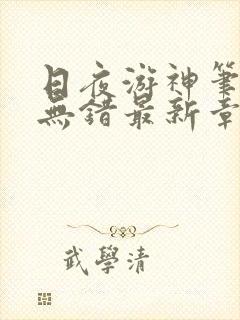 日夜游神笔
無錯最新章
武學清